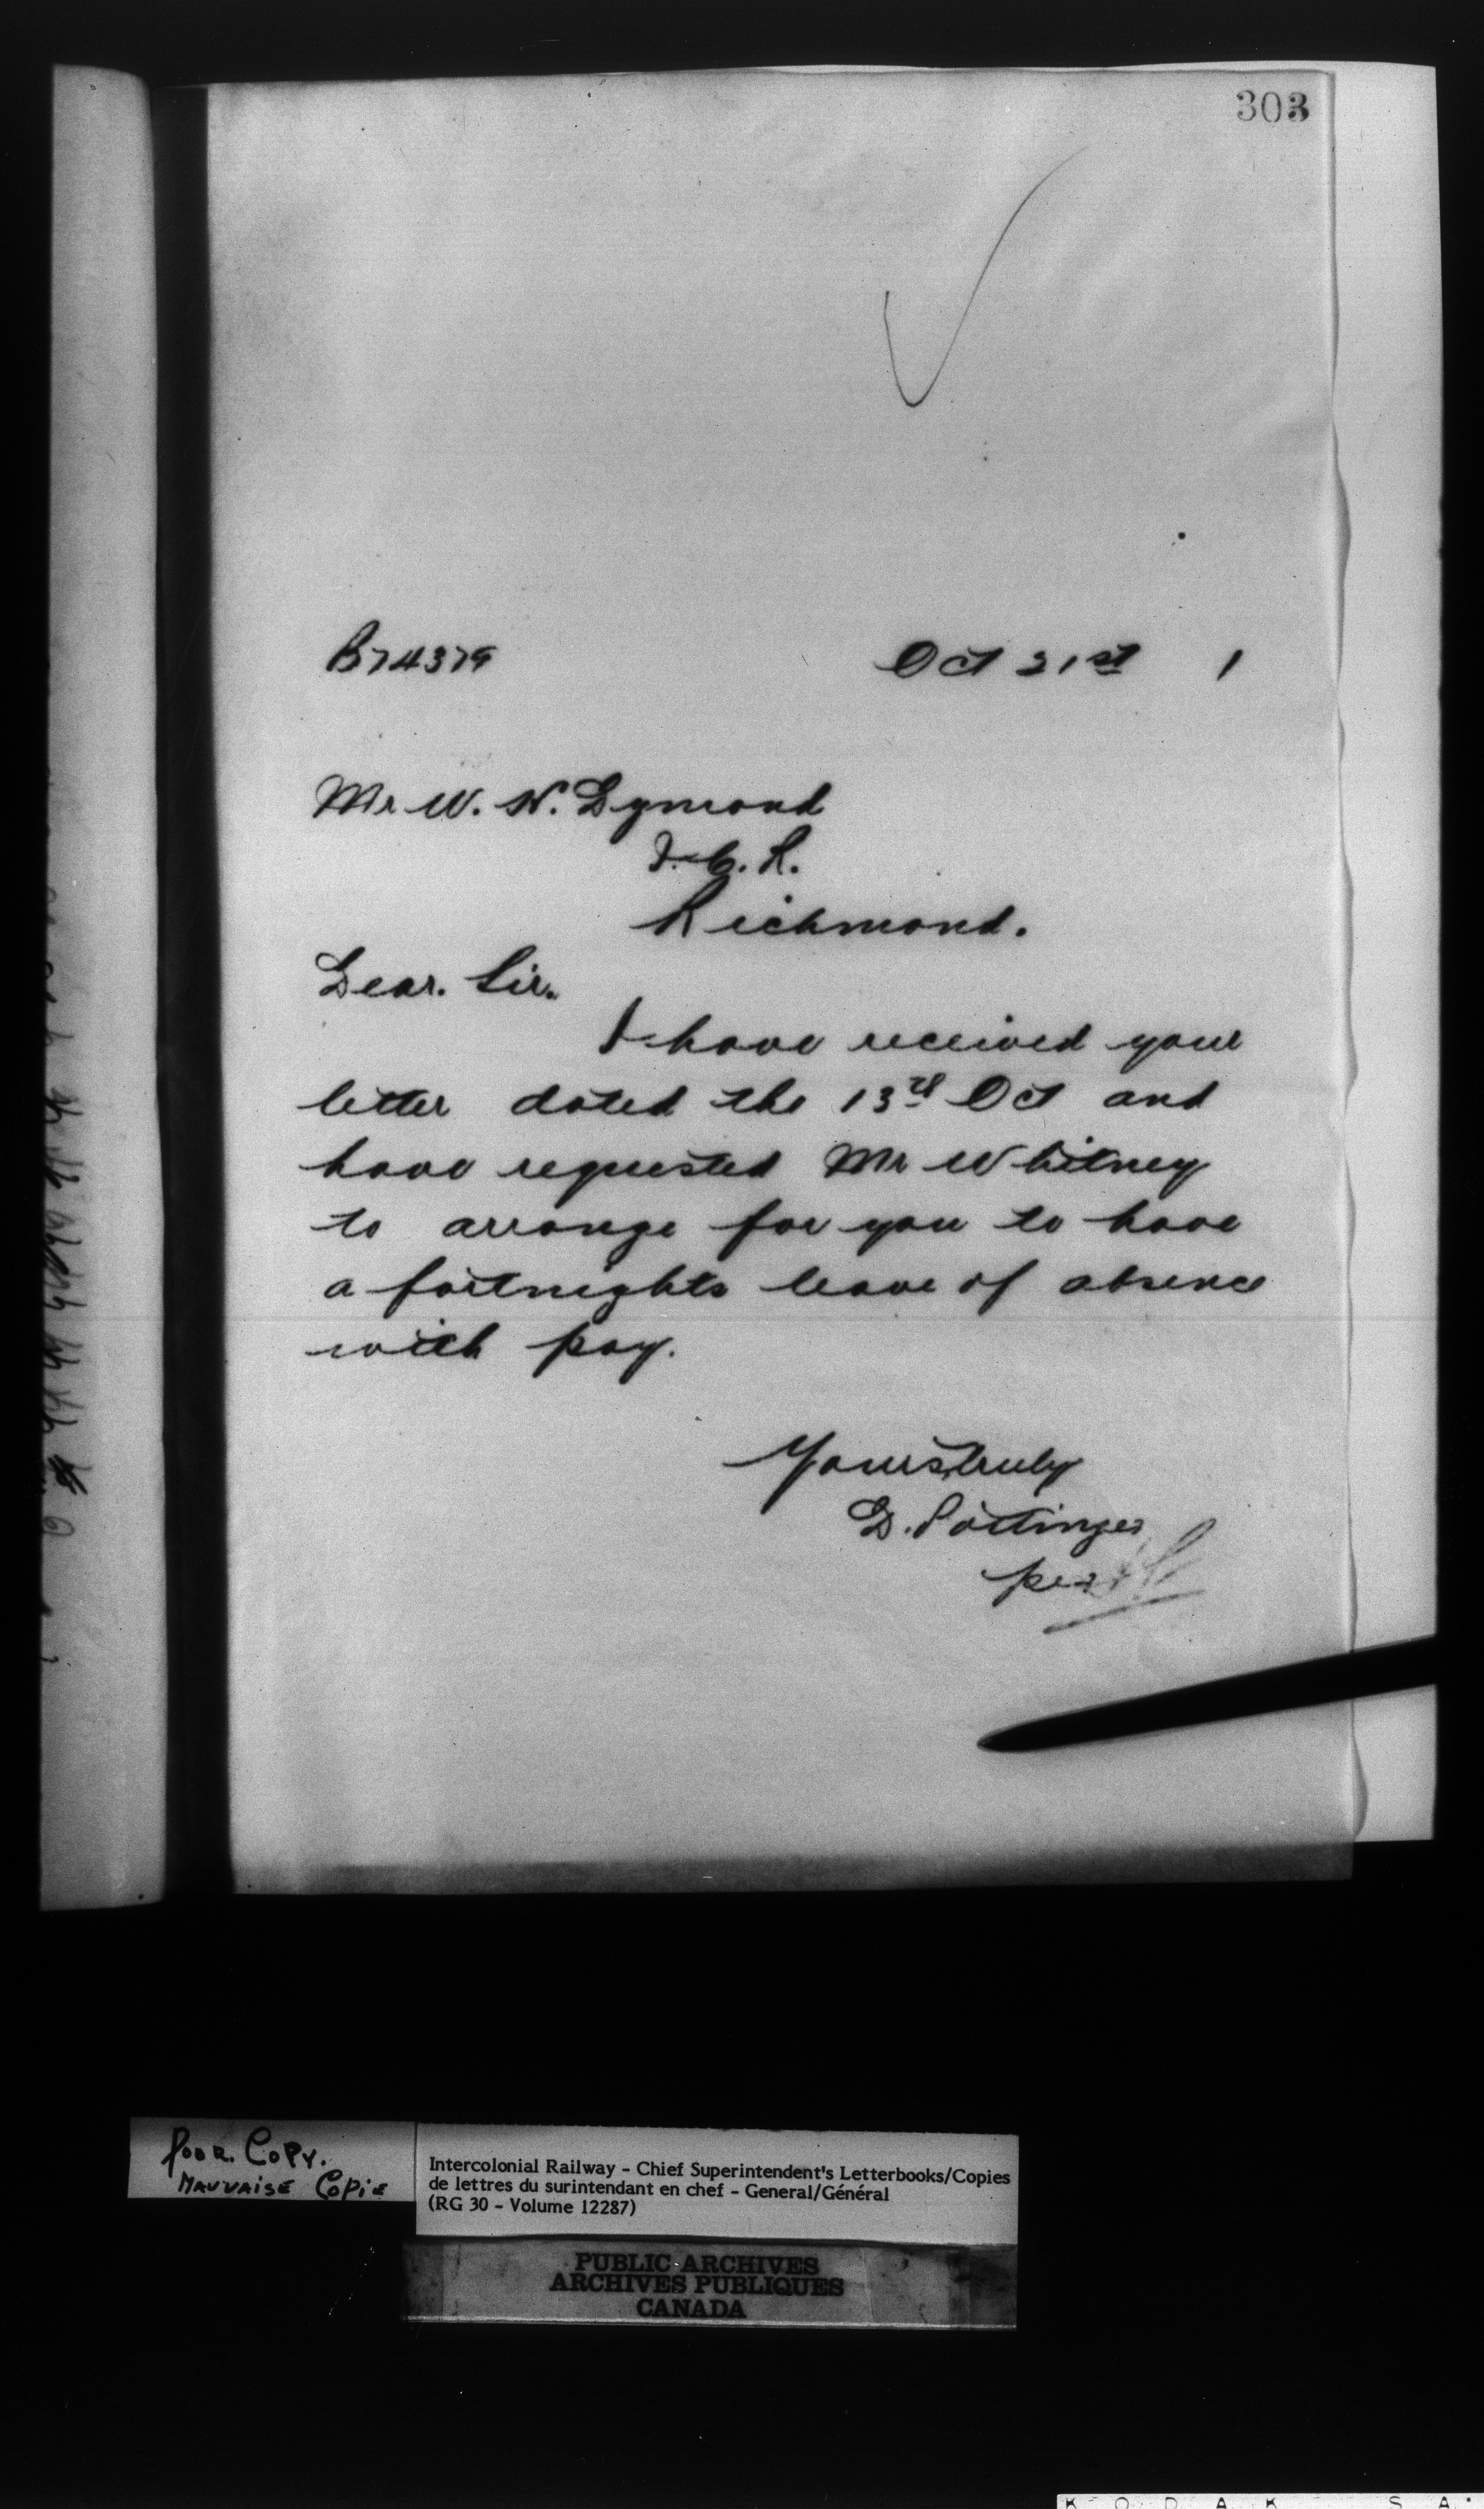 303
B74379 Oct 21st 1
Mr W. W. Dymond
I. C. R.
Richmond.
Dear. Sir.
I have received your
letter dated the 13th Oct and
have requested Mr Whitney
to arrange for you to have
a fortnights leave of absence
with pay.
Yours truly
D. Pottinger
per
POOR. COPY.
MAUVAISE COPIE
Intercolonial Railway – Chief Superintendent's Letterbooks/Copies
de lettres du surintendant en chef – General/Général
(RG 30 – Volume 12287)
PUBLIC ARCHIVES
ARCHIVES PUBLIQUES
CANADA
K O D A K S A